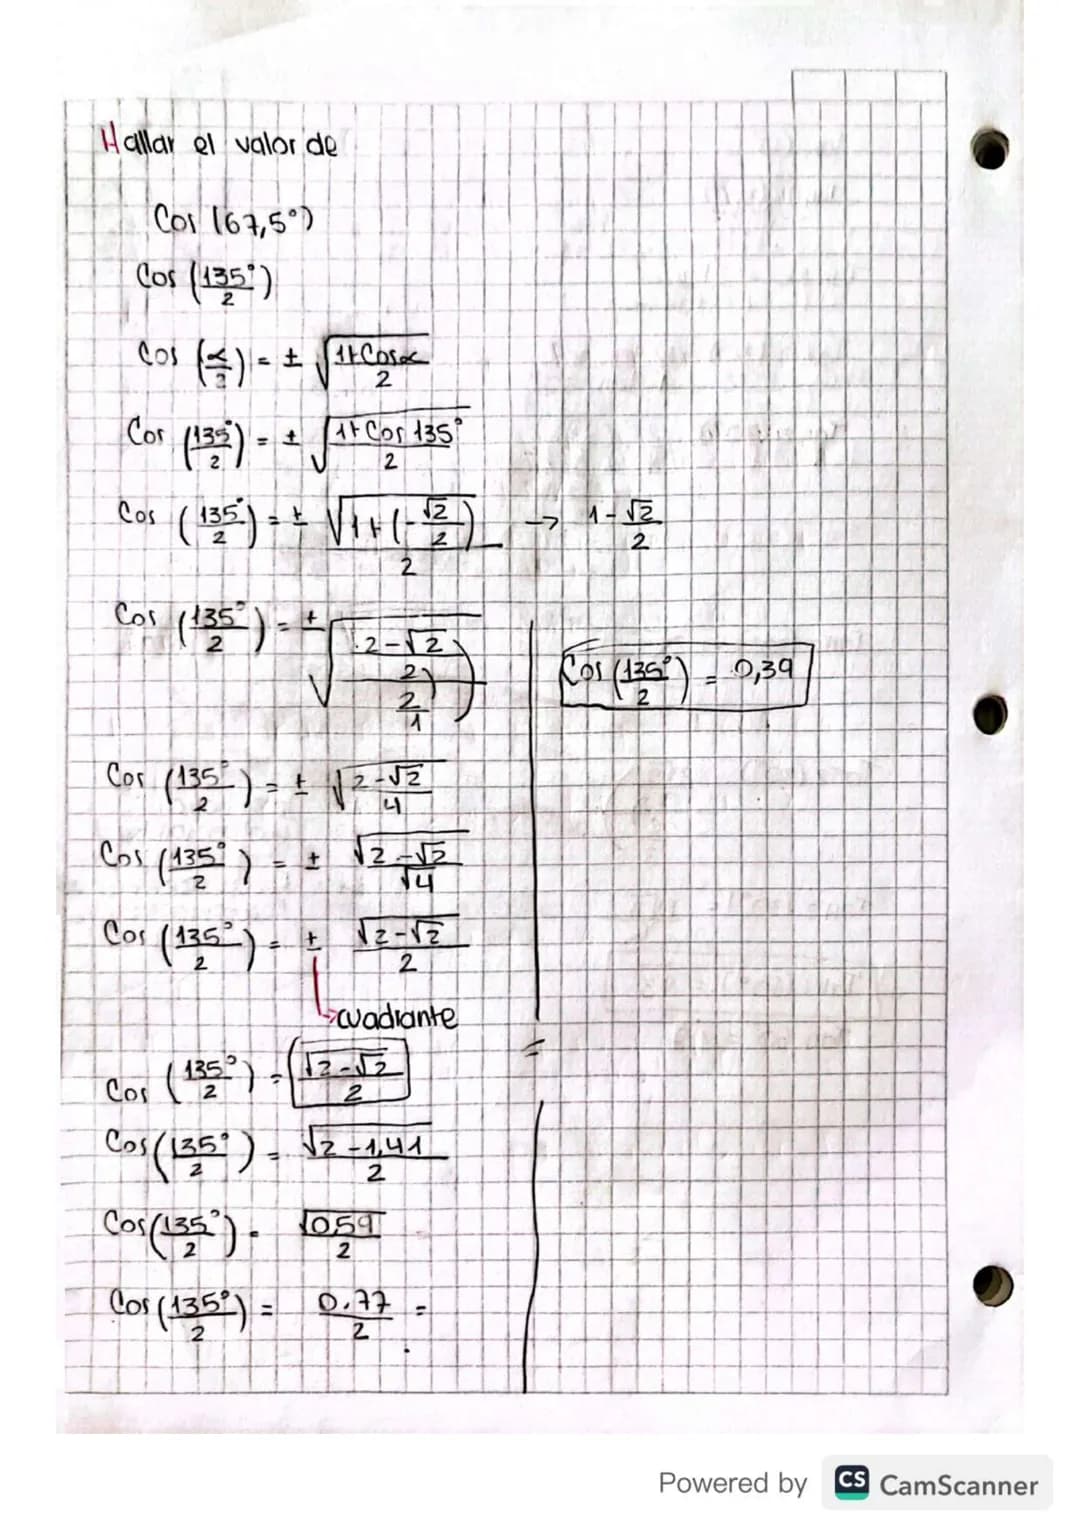 Hallar el valor de
Cos (67,5°)
Cos (135°/2)
Cos (α/2) = ± √(1+Cosα/2)
Cos (135°/2) = ± √(1+Cos 135°/2)
Cos (135°/2) = ± √(1+(-√2/2)/2) → 1-√2/2
Cos (135°/2) = ± √((2-√2/2)/(2/1))
Cos (135°/2) = 0,39
Cos (135°/2) = ± √(2-√2/4)
Cos (135°/2) = ± √2-√2/√4
Cos (135°/2) = ± √2-√2/2
↳cuadrante
Cos (135°/2) = √2-√2/2
Cos (135°/2) = √2-1,41/2
Cos (135°/2) = √0,59/2
Cos (135°/2) = 0.77/2 =
Powered by CS CamScanner